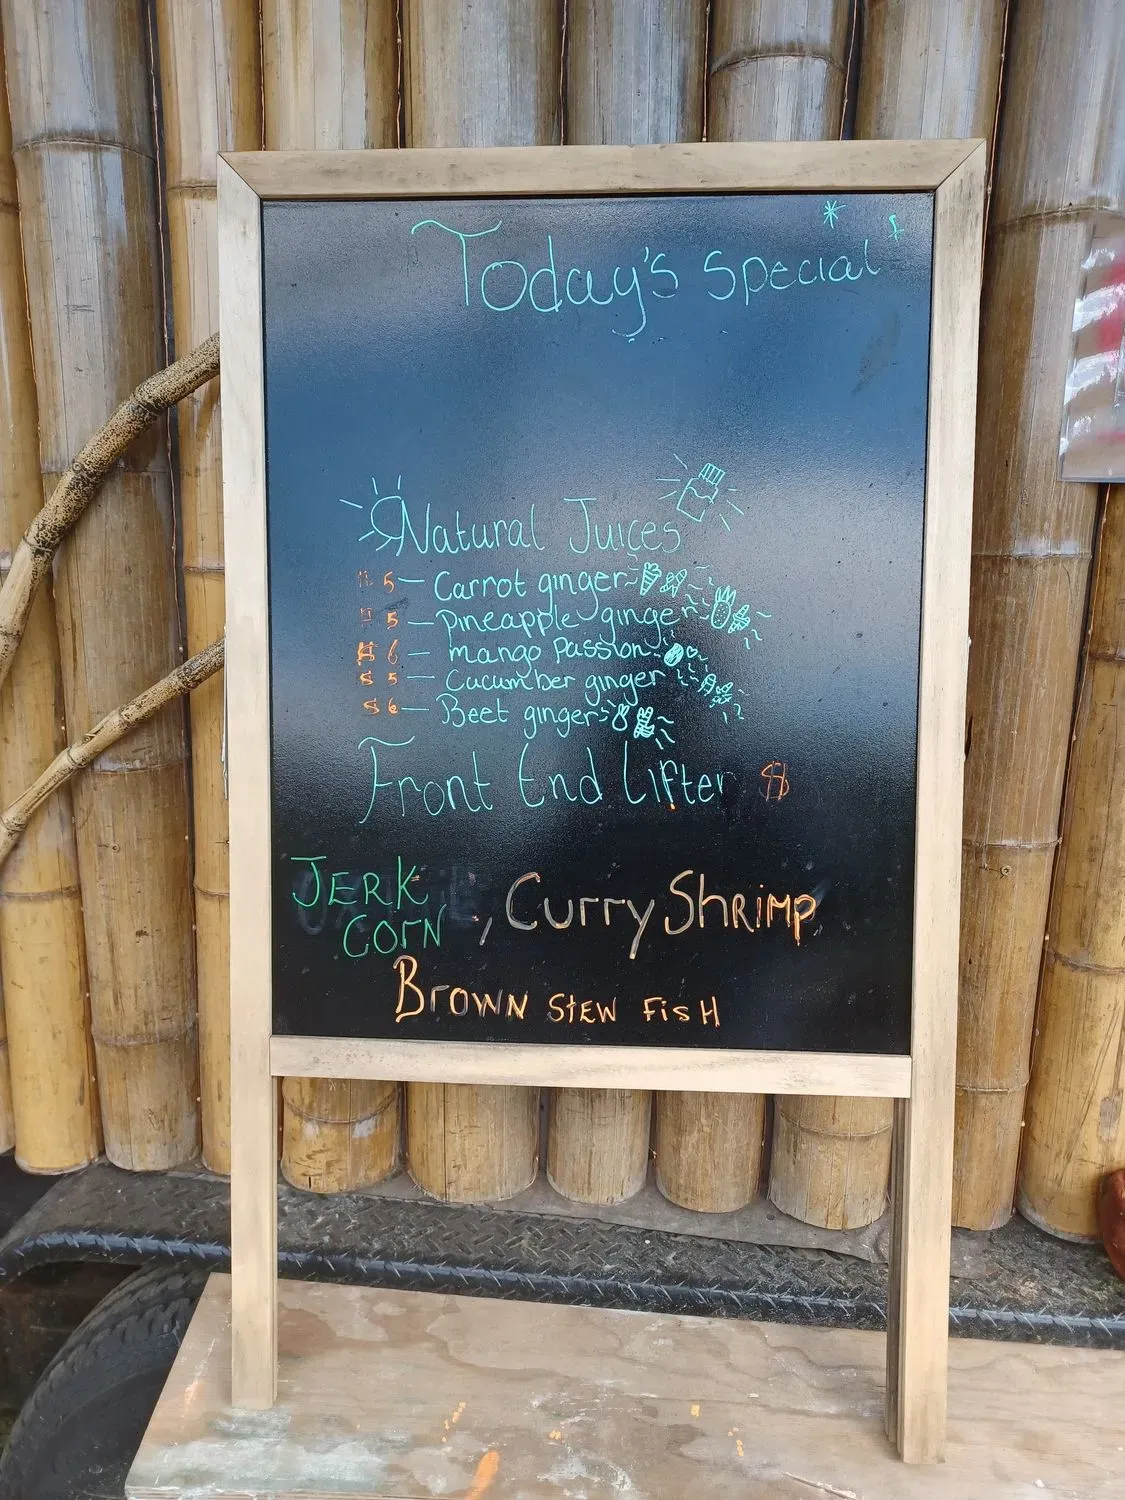 Today's Special
Natural Juices
5 — Carrot ginger
5 — Pineapple ginger
$ 6 — mango Passion
$ 5 — Cucumber ginger
$ 6 — Beet ginger
Front End Lifter $
JERK
CORN , Curry Shrimp
Brown Stew Fish